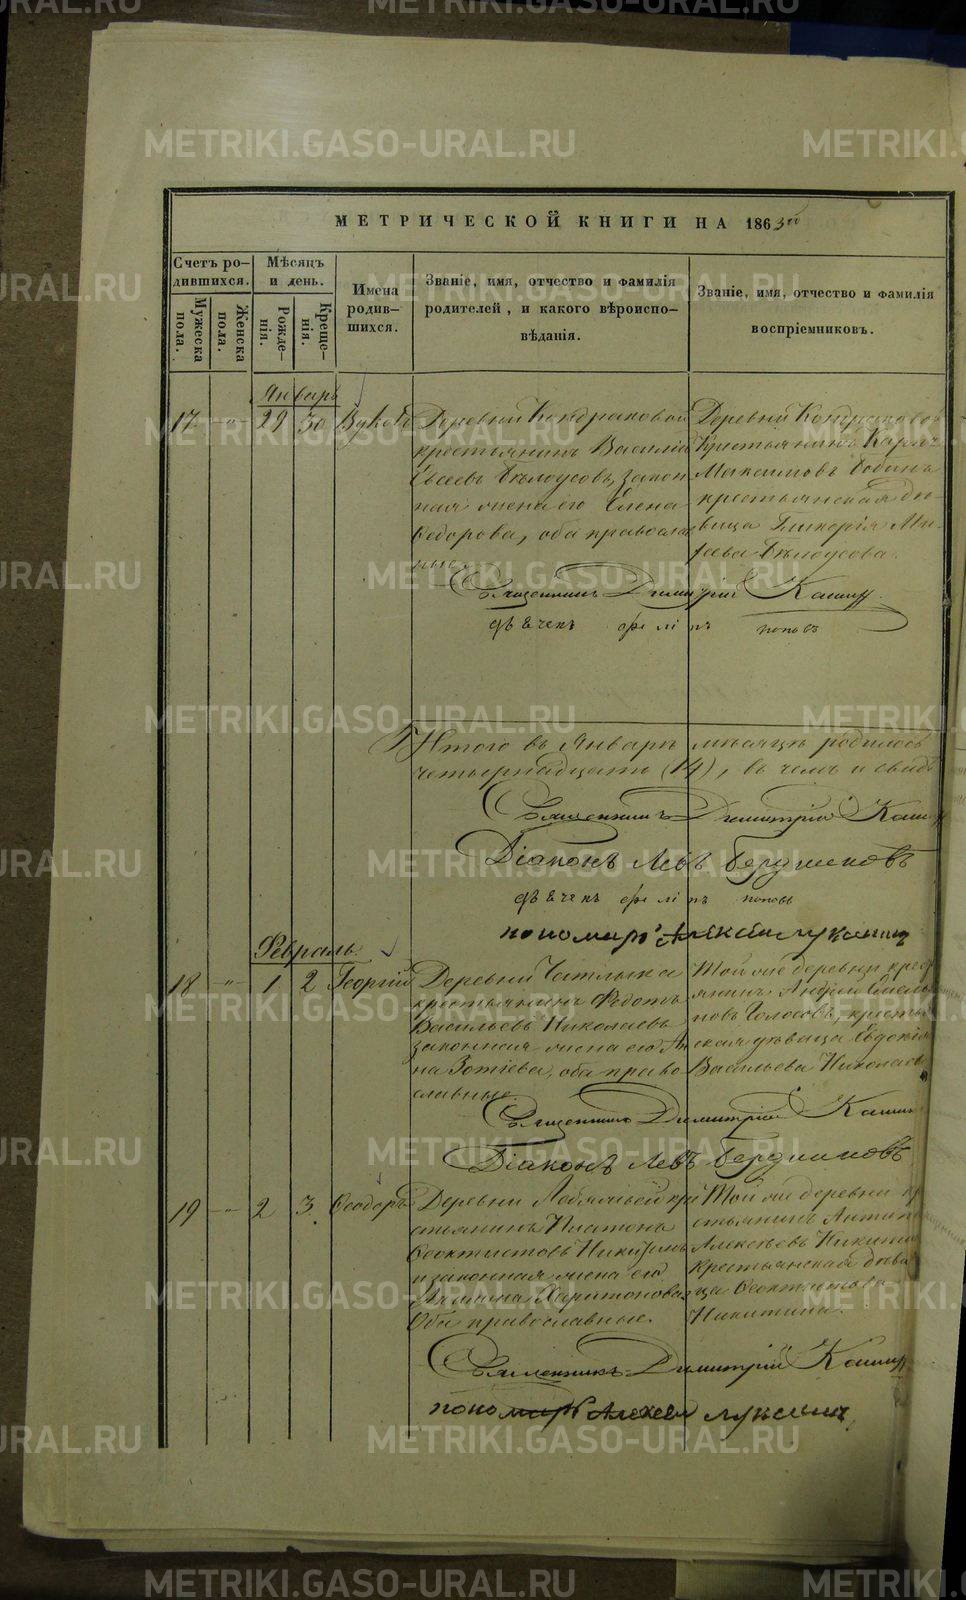 METRIKI.GASO-URAL.RU
МЕТРИЧЕСКОЙ КНИГИ НА 1863
Счетъ родившихся.
Мужеска пола.
Женска пола.
Мѣсяцъ и день.
Рожденія.
Крещенія.
Имена родившихся.
Званіе, имя, отчество и фамилія родителей, и какого вѣроисповѣданія.
Званіе, имя, отчество и фамилія воспріемниковъ.
Январь
17 29 30
Деревни Кондраковой
крестьянинъ Василій
Евсеевъ Бѣлоусовъ, закон
ная жена его Елена
Ѳедорова, оба православ
ные.
Крестьянинъ
Максимовъ
крестьянская дѣ
вица Гликерія
Бѣлоусова.
Священникъ Димитрій
дьячекъ поповъ
Итого въ Январѣ мѣсяцѣ родилось
четырнадцать (14), въ чемъ и свид
Священникъ Димитрій
Діаконъ Левъ Бердниковъ
дьячекъ поповъ
пономарь Алексѣй Лукинъ
Февраль.
18 1 2 Георгій
Деревни Чатлыка
крестьянинъ Ѳедотъ
Васильевъ Николаевъ
законная жена его Ан
на Зотіева, оба право
славные.
Той же деревни крест
янинъ Андрей Емель
новъ Голосовъ, крестья
ская дѣвица Евдокія
Васильева Николаев
Священникъ Димитрій
Діаконъ Левъ Бердниковъ
19 2 3 Ѳеодоръ
Деревни Лебяжьей кре
стьянинъ Платонъ
Ѳеоктистовъ Никитинъ
и законная жена его
Харитонова
Оба православные.
Той же деревни кр
стьянинъ Антипъ
Алексѣевъ Никитинъ
крестьянская дѣви
ца Ѳеоктистова
Никитина.
Священникъ Димитрій
пономарь Алексѣй Лукинъ